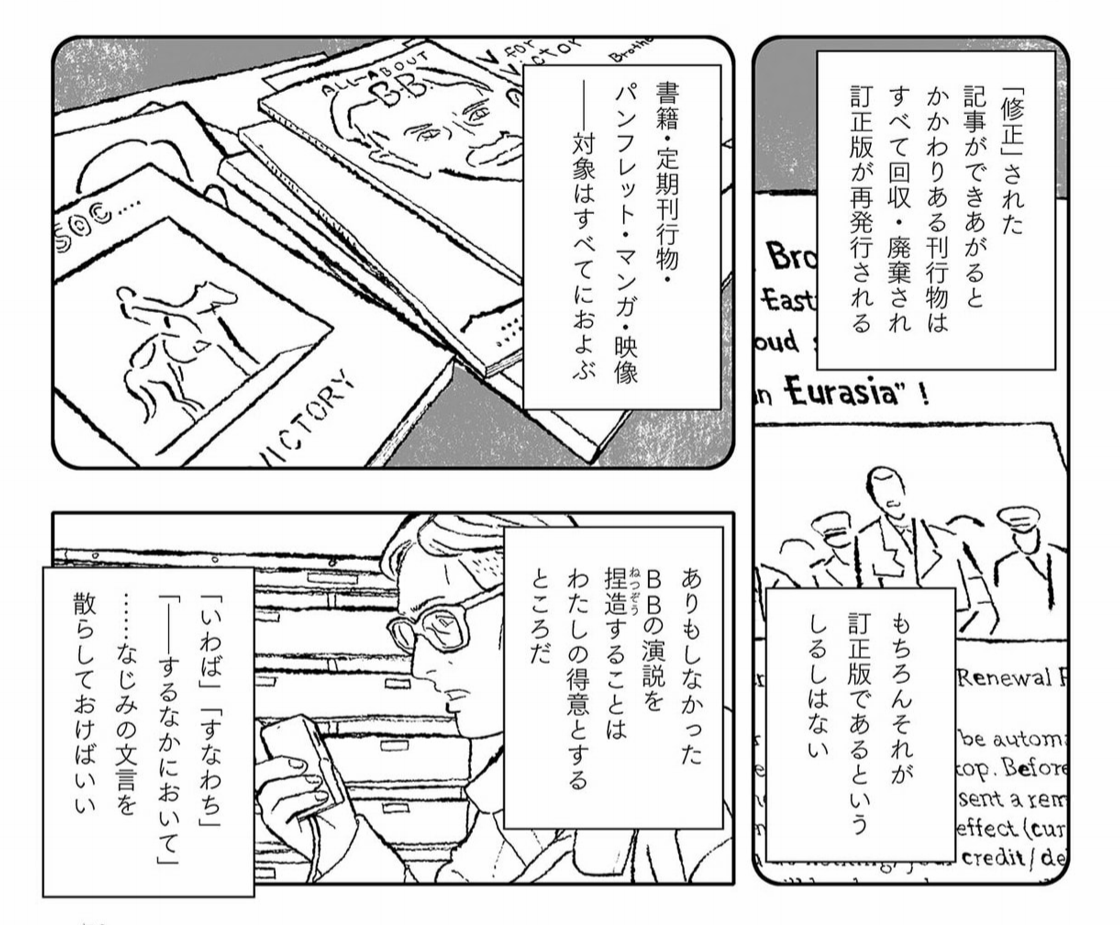 「修正」された
記事ができあがると
かかわりある刊行物は
すべて回収・廃棄され
訂正版が再発行される
Eurasia” !
もちろんそれが
訂正版であるという
しるしはない
Renewal
be
top. Before
sent a
effect
credit/
書籍・定期刊行物・
パンフレット・マンガ・映像
――対象はすべてにおよぶ
ALL-ABOUT
B.B.
V for
Victor
SOC....
VICTORY
ありもしなかった
BBの演説を
捏造することは
ねつぞう
わたしの得意とする
ところだ
「いわば」「すなわち」
「――するなかにおいて」
……なじみの文言を
散らしておけばいい